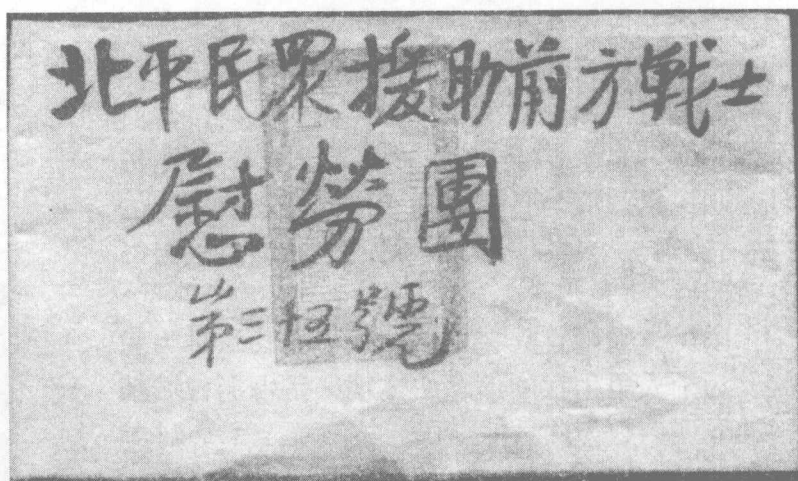 北平民眾援助前方戰士
慰勞團
第三十五號